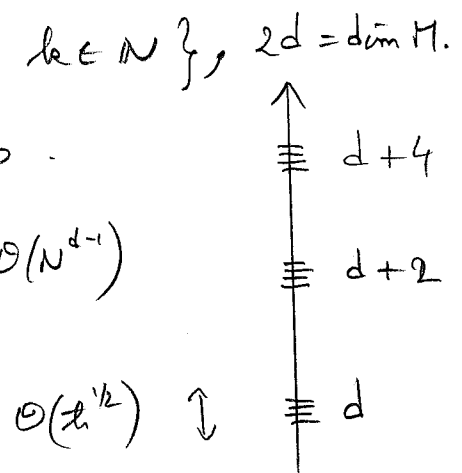 k ∈ ℕ }, 2d = dim M.
d + 4
O(N^{d-1})
d + 2
O(ħ^{1/2}) ↕ d